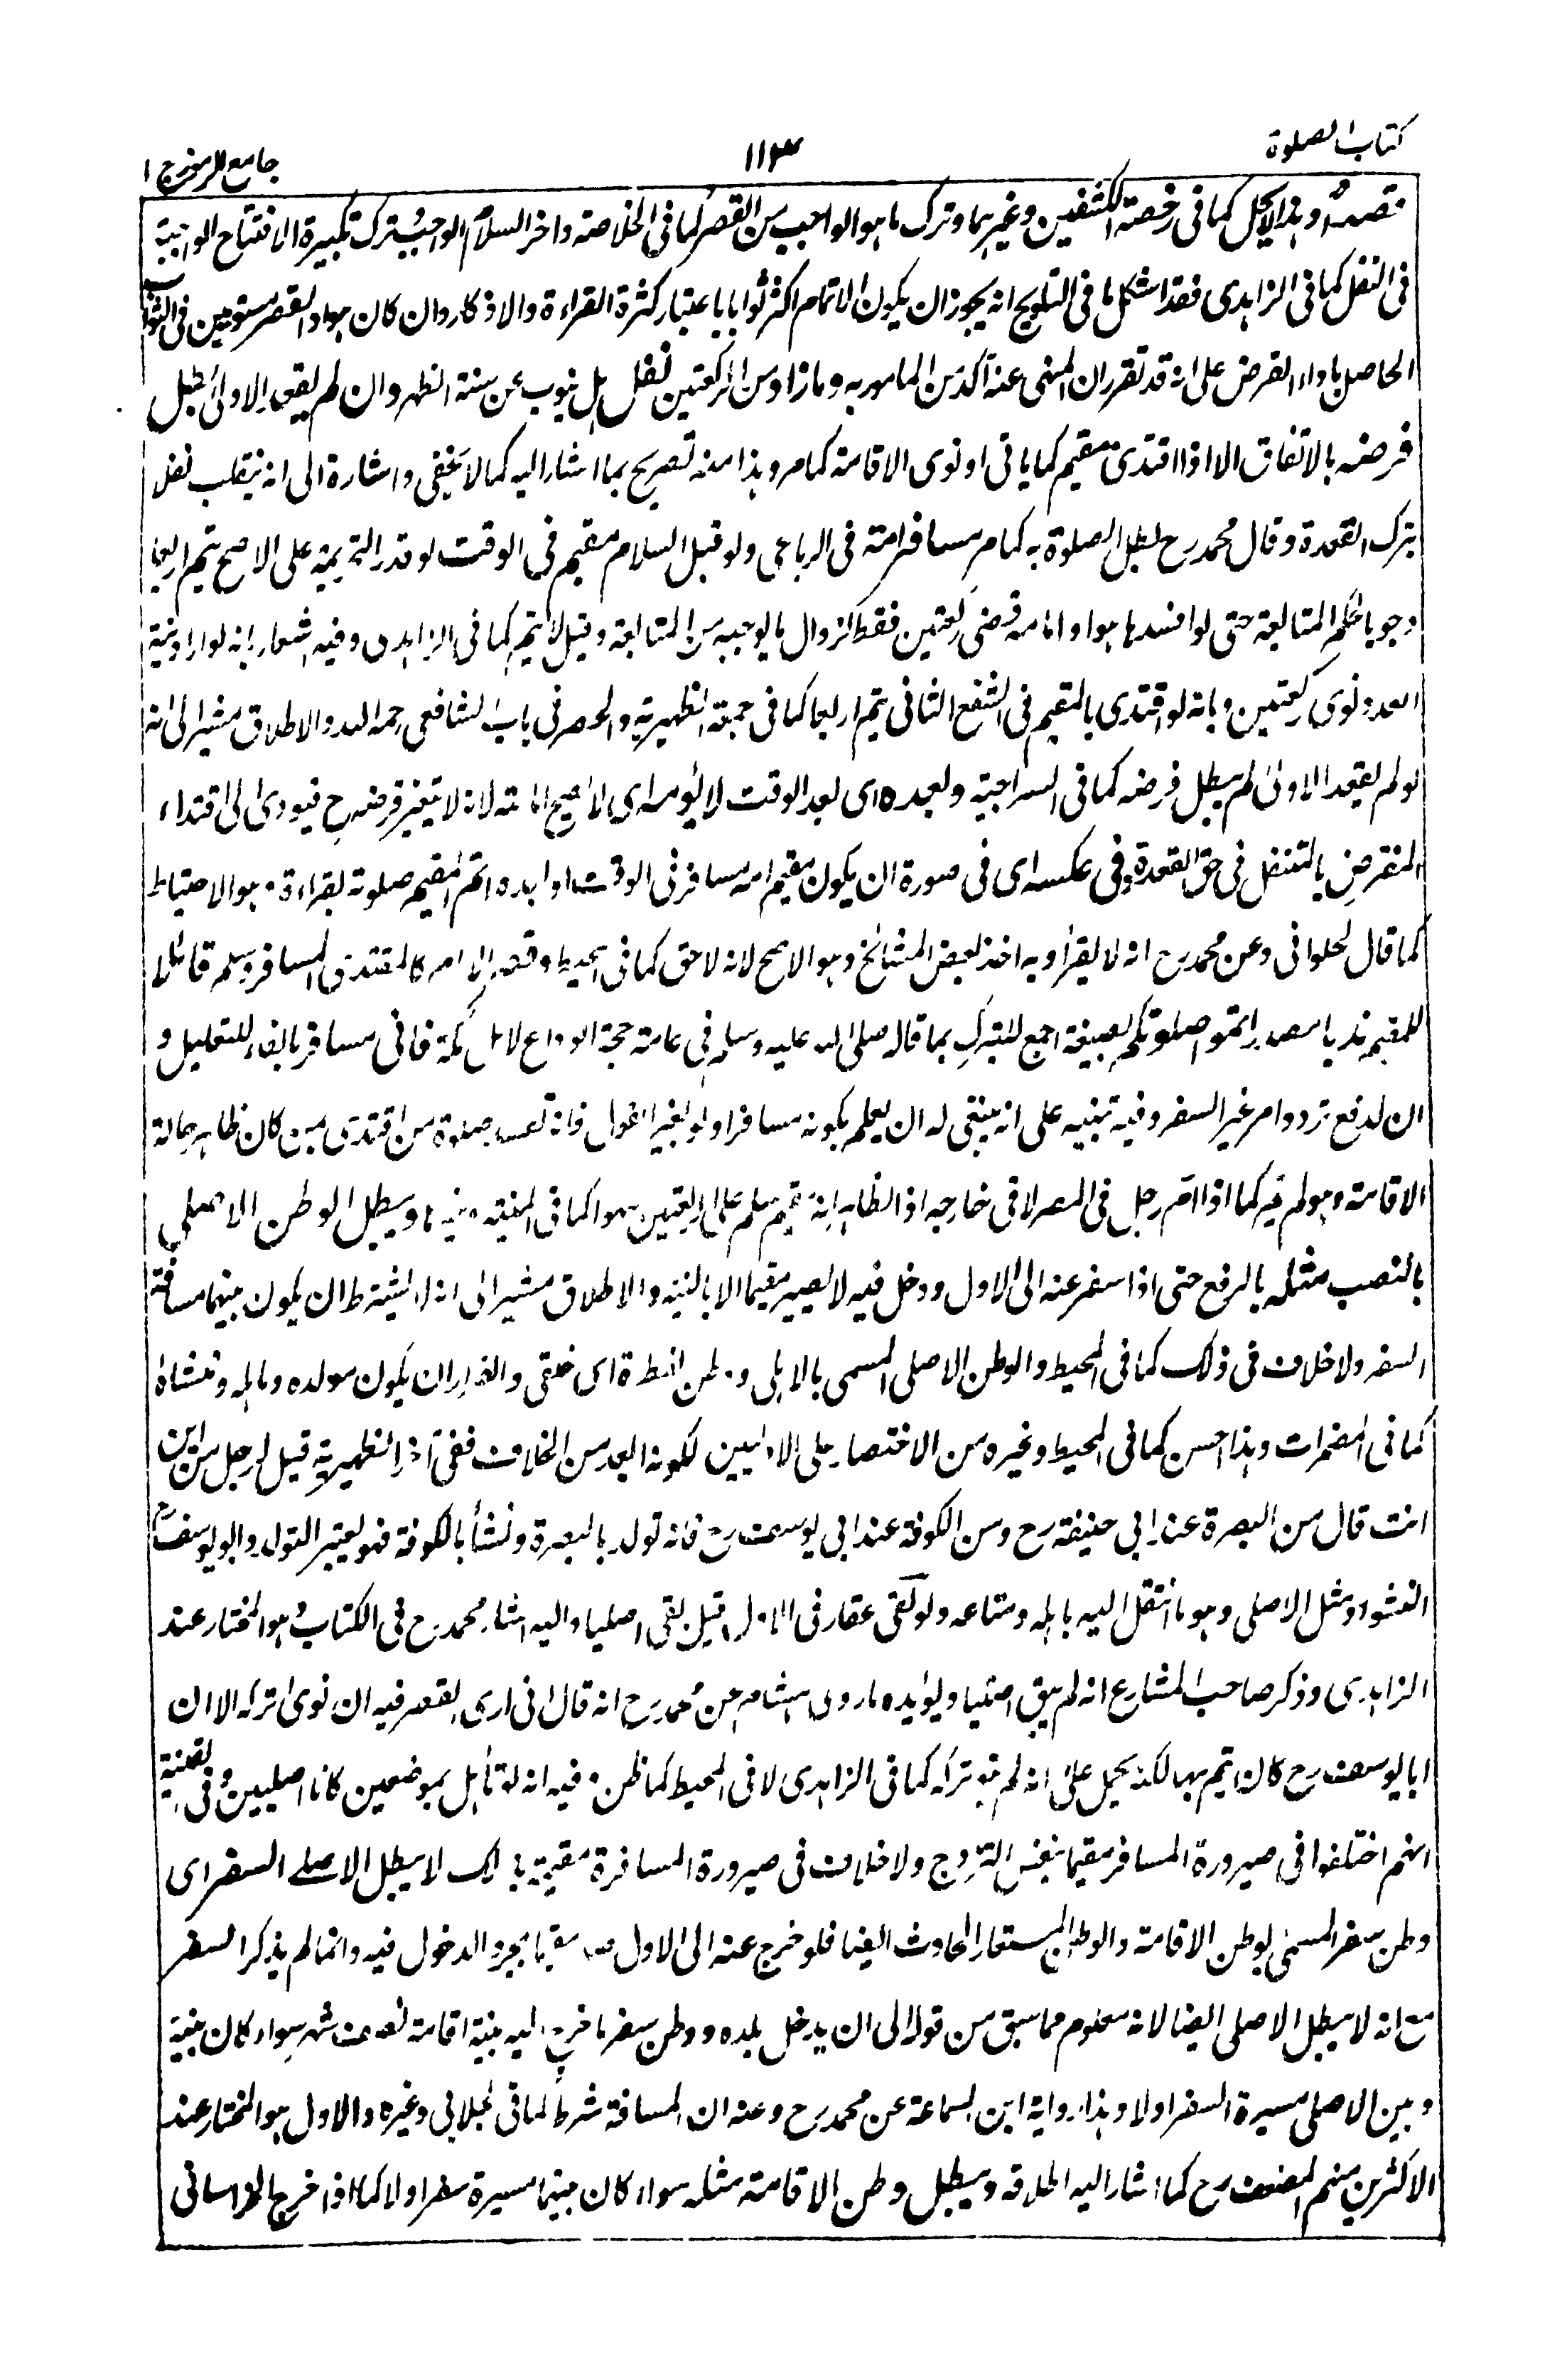 كتاب الصلوة
١١٣
جامع الرموز ج ١
قصدا وهذا لا يحل كما فى رخصة الكشفين وغيرهما وترك ما هو الواجب من القصر كما فى الخلاصة واخر السلام الواجب وترك تكبيرة الافتتاح الواجبة
فى النفل كما فى الزاهدى فقد اشكل ما فى التلويح انه يجوز ان يكون الاتمام اكثر ثوابا باعتبار كثرة القراءة والاذكار وان كان هو والقصر مستويين فى الثواب
الحاصل باداء الفرض على انه قد تقرر ان المنهى عنه آكد من المامور به وما زاد من الركعتين نفل بل ينوب عن سنة الظهر وان لم يقعد الاولى بطل
فرضه بالاتفاق الا اذا اقتدى بمقيم كما ياتى او نوى الاقامة كما مر وهذا منه تصريح بما اشار اليه كما لا يخفى واشارة الى انه ينقلب نفلا
بترك القعدة وقال محمد رح بطل الصلوة به كما مر مسافر امه فى الرباعى ولو قبل السلام مقيم فى الوقت لو قدر التحريمة على الاصح يتم اربعا
وجوبا بحكم المتابعة حتى لو افسدها هو او امامه قضى ركعتين فقط لزوال ما يوجبه من المتابعة وقيل لا يتم كما فى الزاهدى وفيه اشعار بانه لو اراد نية
العدد نوى ركعتين وبانه لو اقتدى بالمقيم فى الشفع الثانى يتم اربعا كما فى جمعة الظهيرية والحصر فى باب الشافعى رحمه الله والاطلاق مشير الى انه
لو لم يقعد الاولى لم يبطل فرضه كما فى السراجية وبعده اى بعد الوقت لا يؤمه اى لا يصح امامته لانه لا يتغير فرضه ح فيودى الى اقتداء
المفترض بالمتنفل فى حق القعدة وفى عكسه اى فى صورة ان يكون مقيم امه مسافر فى الوقت او بعده اتم المقيم صلوته بقراءة وهو الاحتياط
كما قال الحلوانى وعن محمد رح انه لا يقرأ وبه اخذ بعض المشائخ وهو الاصح لانه لاحق كما فى المحيط وقصر الامام كالمقتدى المسافر وسلم قائلا
للمقيم ندبا اتموا صلوتكم بصيغة الجمع للتبرك بما قاله صلى الله عليه وسلم فى عامة حجة الوداع لاهل مكة فانى مسافر بالفاء للتعليل و
ان لدفع تردد امر غير السفر وفيه تنبيه على انه ينبغى له ان يعلم بكونه مسافرا ولو بغير القول فانه تفسد صلوة من اقتدى بمن كان ظاهر حاله
الاقامة وهو لم يدر كما اذا ام رجل فى المصر لا فى خارجه اذ الظاهر انه مقيم سلم على الركعتين سهوا كما فى المنية وغيرها ويبطل الوطن الاصلى
بالنصب مثله بالرفع حتى اذا سفر عنه الى الاول ودخل فيه لا يصير مقيما الا بالنية والاطلاق مشير الى انه لا يشترط ان يكون بينهما مسافة
السفر ولا خلاف فى ذلك كما فى المحيط والوطن الاصلى المسمى بالاهلى ووطن الفطرة اى خلقى والقرار ان يكون مولده وماهله ومنشاه
كما فى المضمرات وهذا احسن كما فى المحيط وغيره من الاختصار على الاولين لكونه ابعد من الخلاف ففى آخر الظهيرية قيل لرجل من اين
انت قال من البصرة عند ابى حنيفة رح ومن الكوفة عند ابى يوسف رح فانه تولد بالبصرة ونشأ بالكوفة فهو يعتبر التولد وابو يوسف رح
النشوء ومثل الاصلى وهو ما انتقل اليه باهله ومتاعه ولو بقى عقار فى الاول قيل بقى اصليا واليه اشار محمد رح فى الكتاب وهو المختار عند
الزاهدى وذكر صاحب المشارع انه لم يبق اصليا ويؤيده ما روى هشام عن محمد رح انه قال انى ارى القصر فيه ان نوى تركه الا ان
ابا يوسف رح كان يتم بها لكنه يحمل على انه لم ينو تركه كما فى الزاهدى لا فى المحيط كما ظن وفيه انه لو تأهل بموضعين كانا اصليين وفى القنية
انهم اختلفوا فى صيرورة المسافر مقيما بنفس التزوج ولا خلاف فى صيرورة المسافرة مقيمة بذلك لا يبطل الاصلى السفر اى
وطن سفر المسمى بوطن الاقامة والوطن المستعار الحادث ايضا فلو خرج عنه الى الاول صار مقيما بمجرد الدخول فيه وانما لم يذكر السفر
مع انه لا يبطل الاصلى ايضا لانه معلوم مما سبق من قوله الى ان يدخل بلده ووطن سفر ما خرج اليه بنية اقامة نصف شهر سواء كان بينه
وبين الاصلى مسيرة السفر اولا وهذا رواية ابن السماعة عن محمد رح وعنه ان المسافة شرط كما فى الجلابى وغيره والاول هو المختار عند
الاكثرين منهم المصنف رح كما اشار اليه اطلاقه ويبطل وطن الاقامة مثله سواء كان بينهما مسيرة سفر اولا كما اذا خرج الخراسانى